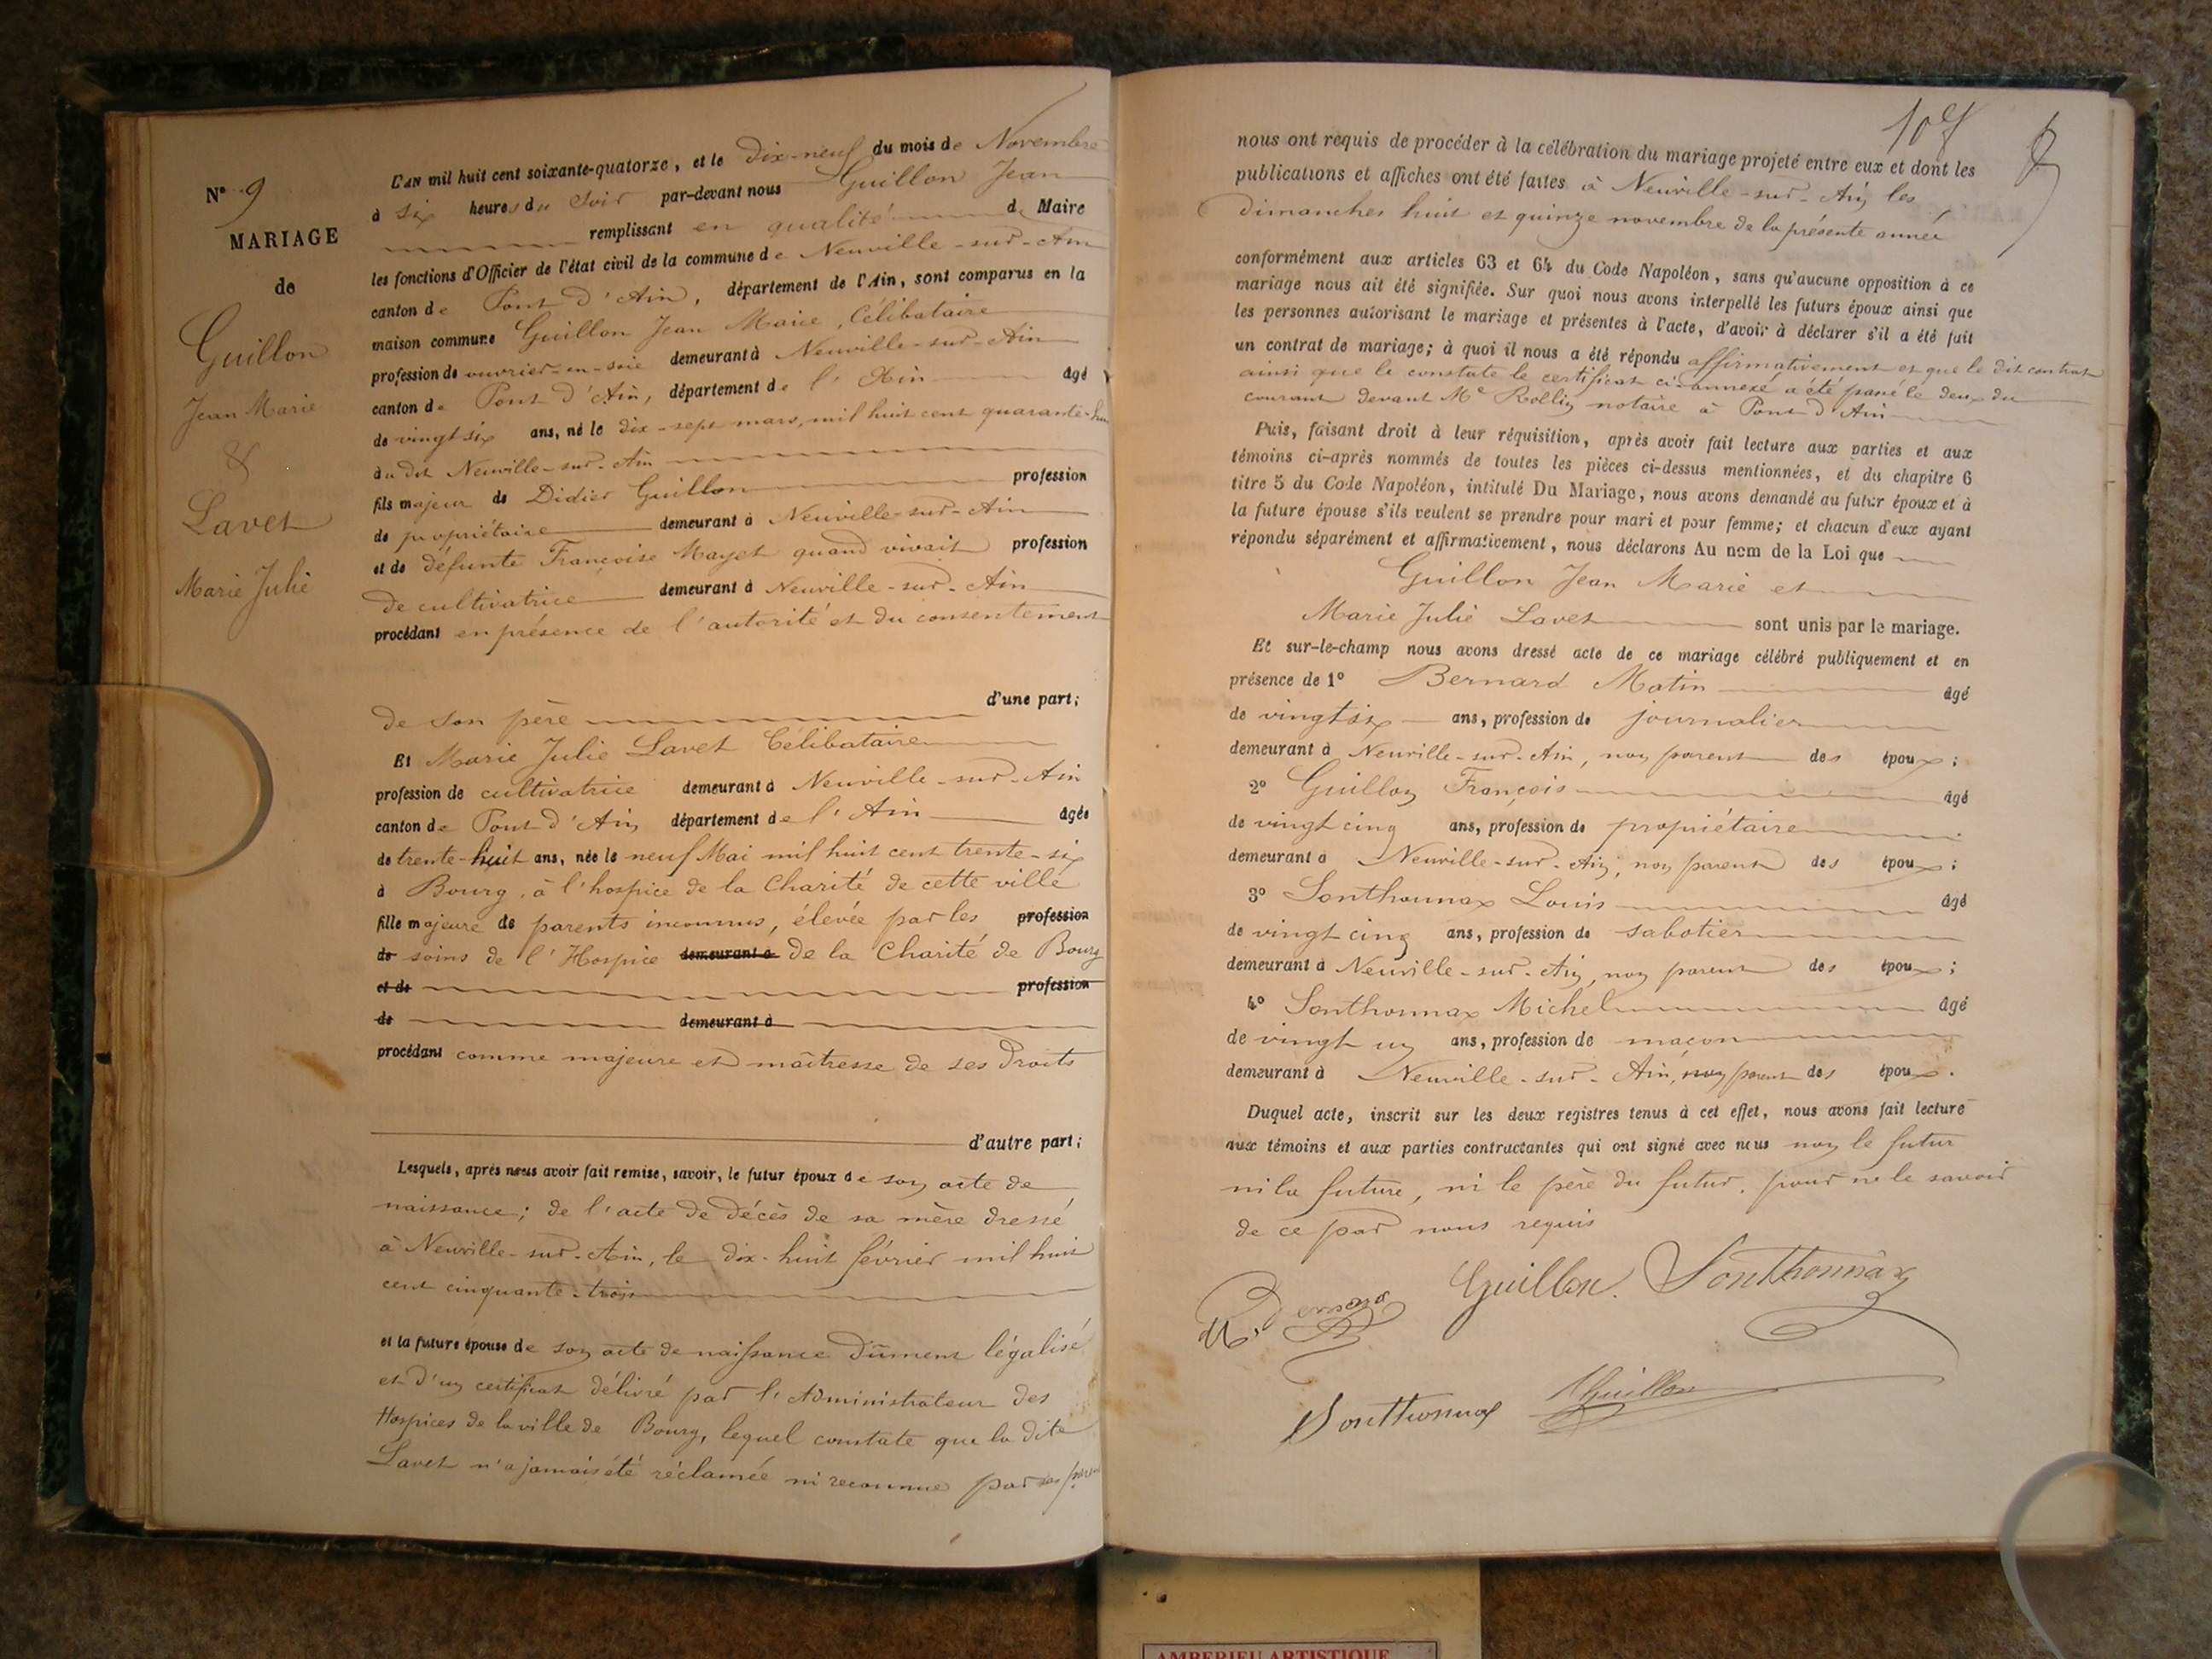 N° 9
MARIAGE
de
Guillon
Jean Marie
&
Lavet
Marie Julie
L'AN mil huit cent soixante-quatorze, et le Dix-neuf du mois de Novembre
à six heures du soir par-devant nous Guillon Jean
remplissant en qualité de Maire
les fonctions d'Officier de l'état civil de la commune de Neuville-sur-Ain
canton de Pont d'Ain, département de l'Ain, sont comparus en la
maison commune Guillon Jean Marie, Célibataire
profession de ouvrier-en-soie demeurant à Neuville-sur-Ain
canton de Pont d'Ain, département de l'Ain âgé
de vingt six ans, né le dix-sept mars, mil huit cent quarante-huit
au dit Neuville-sur-Ain
fils majeur de Didier Guillon profession
de propriétaire demeurant à Neuville-sur-Ain
et de défunte Françoise Mayet quand vivait profession
de cultivatrice demeurant à Neuville-sur-Ain
procédant en présence de l'autorité et du consentement
d'une part;
de son père
Et Marie Julie Lavet Célibataire
profession de cultivatrice demeurant à Neuville-sur-Ain
canton de Pont d'Ain département de l'Ain âgée
de trente-huit ans, née le neuf Mai mil huit cent trente-six
à Bourg, à l'hospice de la Charité de cette ville
fille majeure de parents inconnus, élevée par les profession
de soins de l'Hospice demeurant à de la Charité de Bourg
et de profession
de demeurant à
procédant comme majeure et maîtresse de ses Droits
d'autre part;
Lesquels, après nous avoir fait remise, savoir, le futur époux de son acte de
naissance; de l'acte de décès de sa mère dressé
à Neuville-sur-Ain, le dix-huit février mil huit
cent cinquante-trois
et la future épouse de son acte de naissance dûment légalisé
et d'un certificat délivré par l'Administrateur des
Hospices de la ville de Bourg, lequel constate que la dite
Lavet n'a jamais été réclamée ni reconnue par ses
nous ont requis de procéder à la célébration du mariage projeté entre eux et dont les
publications et affiches ont été faites à Neuville-sur-Ain les
dimanches huit et quinze novembre de la présente année
conformément aux articles 63 et 64 du Code Napoléon, sans qu'aucune opposition à ce
mariage nous ait été signifiée. Sur quoi nous avons interpellé les futurs époux ainsi que
les personnes autorisant le mariage et présentes à l'acte, d'avoir à déclarer s'il a été fait
un contrat de mariage; à quoi il nous a été répondu affirmativement et que le dit contrat
ainsi que le constate le certificat ci-annexé a été passé le deux du
courant devant Me Rollin notaire à Pont d'Ain
Puis, faisant droit à leur réquisition, après avoir fait lecture aux parties et aux
témoins ci-après nommés de toutes les pièces ci-dessus mentionnées, et du chapitre 6
titre 5 du Code Napoléon, intitulé Du Mariage, nous avons demandé au futur époux et à
la future épouse s'ils veulent se prendre pour mari et pour femme; et chacun d'eux ayant
répondu séparément et affirmativement, nous déclarons Au nom de la Loi que
Guillon Jean Marie et
Marie Julie Lavet sont unis par le mariage.
Et sur-le-champ nous avons dressé acte de ce mariage célébré publiquement et en
présence de 1° Bernard Matin âgé
de vingt six ans, profession de journalier
demeurant à Neuville-sur-Ain, non parent des époux;
2° Guillon François âgé
de vingt cinq ans, profession de propriétaire
demeurant à Neuville-sur-Ain, non parent des époux;
3° Sonthonnax Louis âgé
de vingt cinq ans, profession de sabotier
demeurant à Neuville-sur-Ain, non parent des époux;
4° Sonthonnax Michel âgé
de vingt un ans, profession de maçon
demeurant à Neuville-sur-Ain, non parent des époux.
Duquel acte, inscrit sur les deux registres tenus à cet effet, nous avons fait lecture
aux témoins et aux parties contractantes qui ont signé avec nous non le futur
ni la future, ni le père du futur, pour ne le savoir
de ce par nous requis
Guillon. Sonthonnax
Sonthonnax Guillon
AMBERIEU ARTISTIQUE